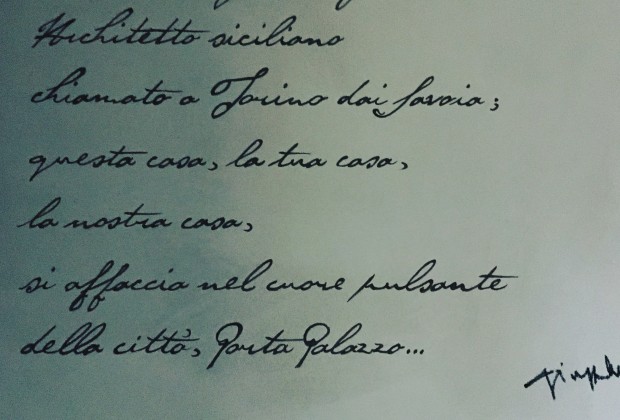 Architetto siciliano
chiamato a Torino dai Savoia;
questa casa, la tua casa,
la nostra casa,
si affaccia nel cuore pulsante
della città, Porta Palazzo...